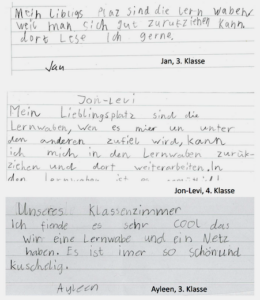 Mein libligs Plaz sind die lern waben
weil man sich gut zurükziehen kann
dort Lese Ich gerne.
Jan
Jan, 3. Klasse
Jon-Levi
Mein Lieblingsplatz sind die
Lernwaben, Wen es mier un unter
den anderen zufiel wird, kann
ich mich in den Lernwaben zurük-
ziehen und dort weiterarbeiten. In
den lernwaben ist es
Jon-Levi, 4. Klasse
Unseres Klassenzimmer
Ich finde es sehr COOL das
wir eine Lernwabe und ein Netz
haben. Es ist imer so schön und
kuschelig.
Ayleen
Ayleen, 3. Klasse